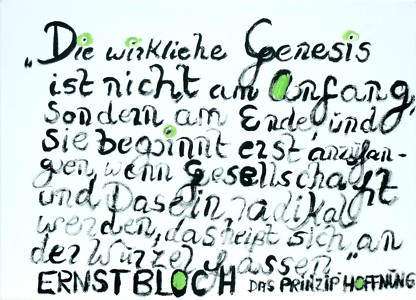 „Die wirkliche Genesis
ist nicht am Anfang,
sondern am Ende und
sie beginnt erst anzufan-
gen, wenn Gesellschaft
und Dasein radikal
werden, das heißt sich an
der Wurzel fassen."
ERNST BLOCH DAS PRINZIP HOFFNUNG